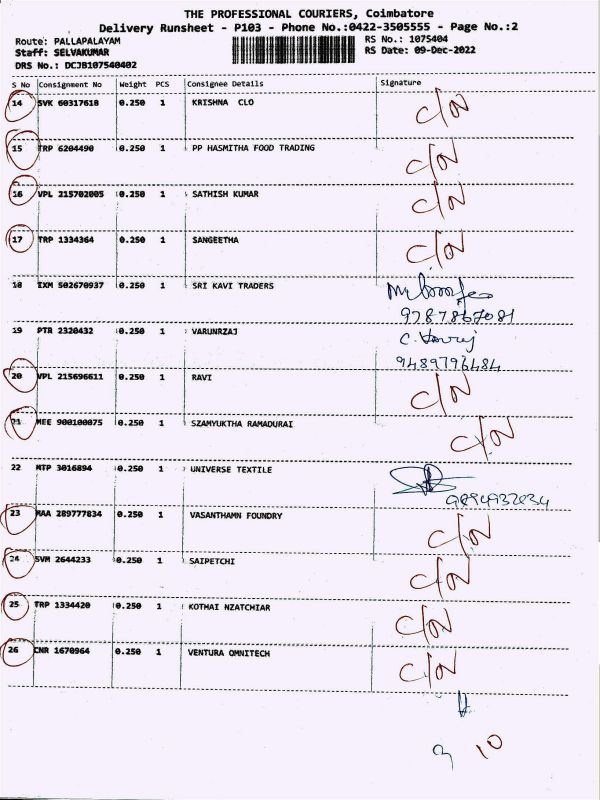 THE PROFESSIONAL COURIERS, Coimbatore
Delivery Runsheet - P103 - Phone No.:0422-3505555 - Page No.:2
Route: PALLAPALAYAM RS No.: 1075404
Staff: SELVAKUMAR RS Date: 09-Dec-2022
DRS No.: DCJB107540402
S No Consignment No Weight PCS Consignee Details Signature
14 SVK 60317618 0.250 1 KRISHNA CLO C/N
15 TRP 6204490 0.250 1 PP HASMITHA FOOD TRADING C/N
16 VPL 215702005 0.250 1 SATHISH KUMAR C/N
17 TRP 1334364 0.250 1 SANGEETHA C/N
18 IXM 502670937 0.250 1 SRI KAVI TRADERS
9787867081
19 PTR 2320432 0.250 1 VARUNRZAJ
9489796484
20 VPL 215696611 0.250 1 RAVI C/N
21 MEE 900100075 0.250 1 SZAMYUKTHA RAMADURAI C/N
22 MTP 3016894 0.250 1 UNIVERSE TEXTILE
23 MAA 289777834 0.250 1 VASANTHAMN FOUNDRY C/N
24 SVM 2644233 0.250 1 SAIPETCHI C/N
25 TRP 1334420 0.250 1 KOTHAI NZATCHIAR C/N
26 CNR 1670964 0.250 1 VENTURA OMNITECH C/N
10